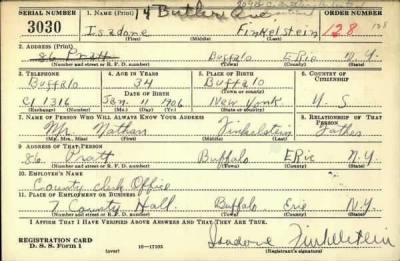 SERIAL NUMBER 1. NAME (Print) 14 Butler Ave.
3030 Isadore Finkelstein 128
(First) (Middle) (Last)
2. ADDRESS (Print)
86 Pratt Buffalo Erie N.Y.
(Number and street or R. F. D. number) (Town) (County) (State)
3. TELEPHONE 4. AGE IN YEARS 5. PLACE OF BIRTH 6. COUNTRY OF CITIZENSHIP
Buffalo 34 Buffalo
DATE OF BIRTH (Town or county)
Cl 1316 Jan. 11 1906 New York U. S.
(Exchange) (Number) (Mo.) (Day) (Yr.) (State or country)
7. NAME OF PERSON WHO WILL ALWAYS KNOW YOUR ADDRESS 8. RELATIONSHIP OF THAT PERSON
Mr. Nathan Finkelstein Father
(Mr., Mrs., Miss) (First) (Middle) (Last)
9. ADDRESS OF THAT PERSON
86 Pratt Buffalo Erie N.Y.
(Number and street or R. F. D. number) (Town) (County) (State)
10. EMPLOYER'S NAME
County Clerk Office
11. PLACE OF EMPLOYMENT OR BUSINESS
7 County Hall Buffalo Erie N.Y.
(Number and street or R. F. D. number) (Town) (County) (State)
I AFFIRM THAT I HAVE VERIFIED ABOVE ANSWERS AND THAT THEY ARE TRUE.
REGISTRATION CARD
D. S. S. Form 1 (over) 16—17105 Isadore Finkelstein
(Registrant's signature)